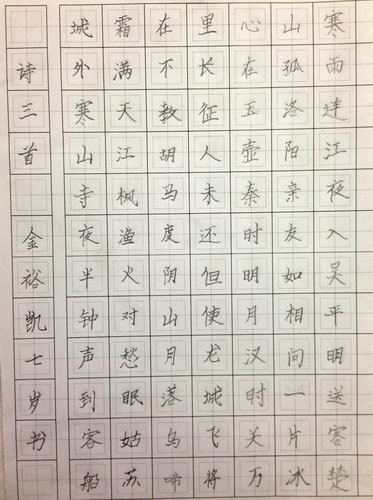 寒雨连江夜入吴平明送客楚
山孤洛阳亲友如相问一片冰
心在玉壶秦时明月汉时关万
里长征人未还但使龙城飞将
在不教胡马度阴山月落乌啼
霜满天江枫渔火对愁眠姑苏
城外寒山寺夜半钟声到客船
诗三首 金裕凯七岁书